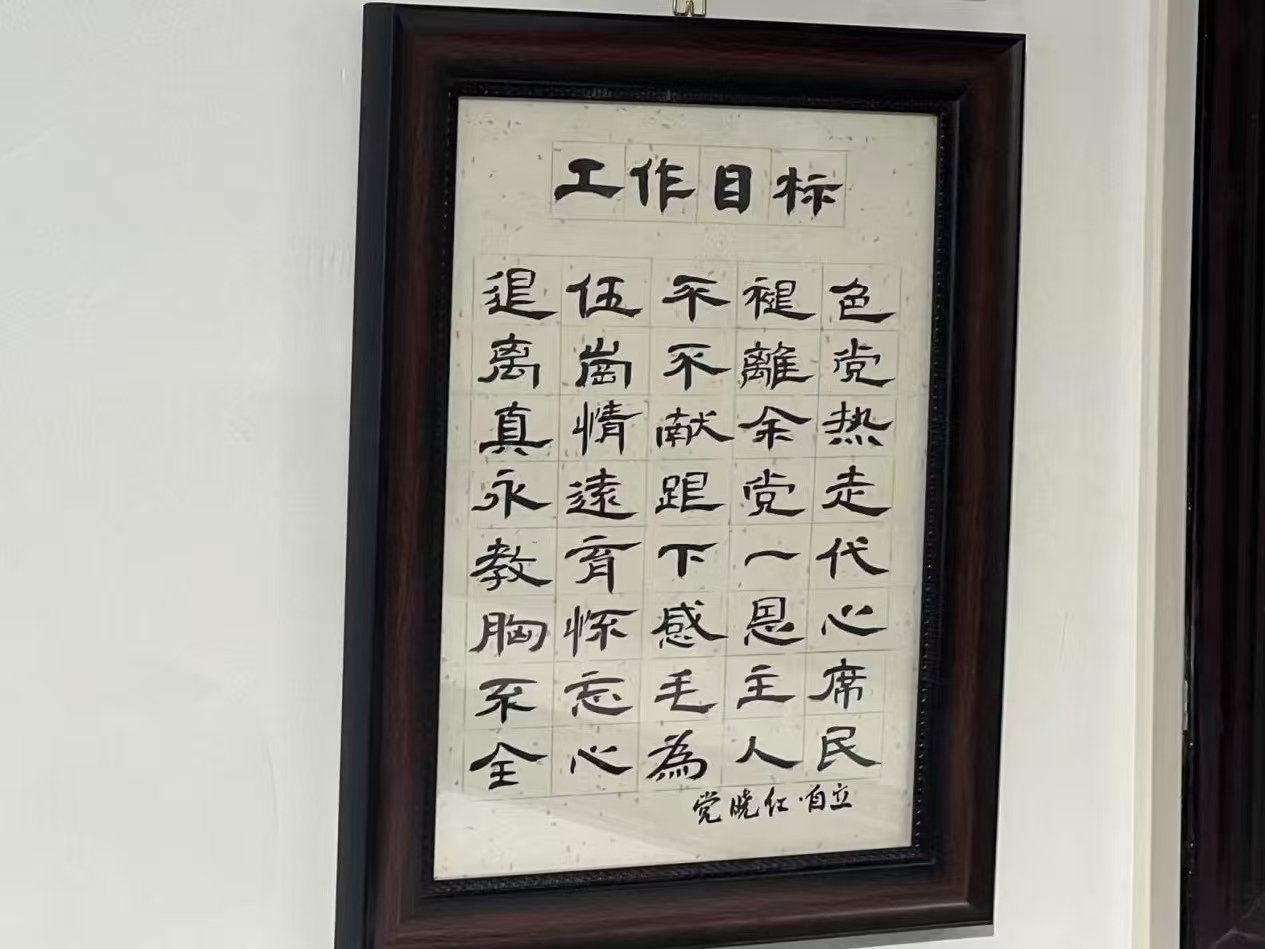 工作目标
退伍不褪色
离崗不離党
真情献余热
永遠跟党走
教育下一代
胸怀感恩心
不忘毛主席
全心為人民
党晓红·自立